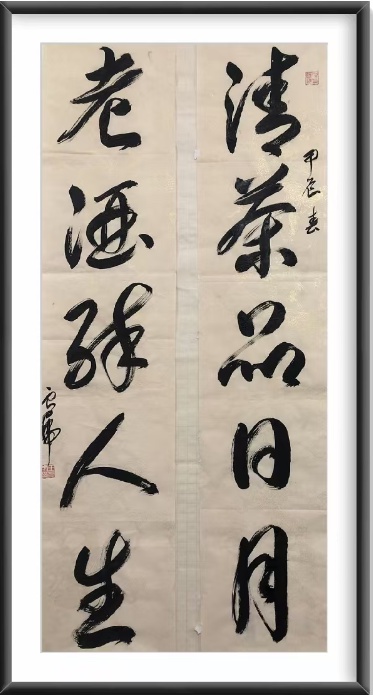 清茶品日月
甲辰春
老酒醉人生